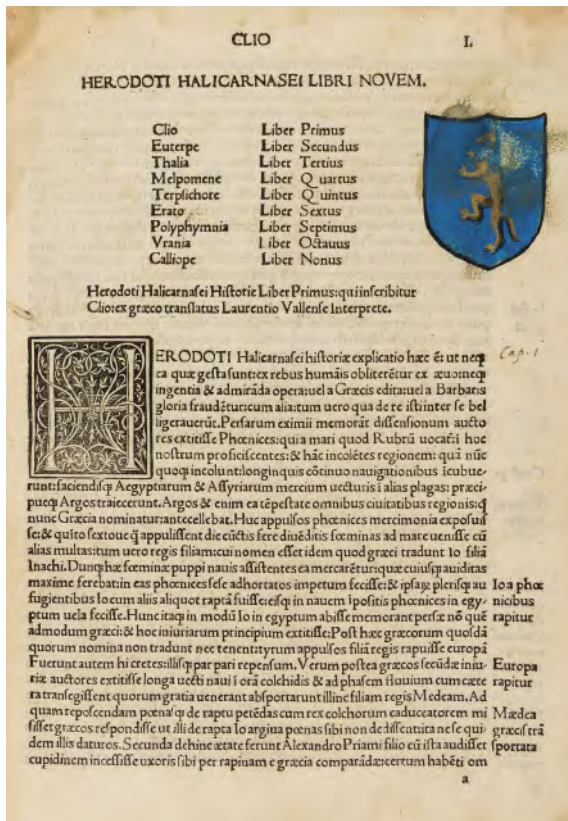 CLIO
I.
HERODOTI HALICARNASEI LIBRI NOVEM.
Clio Liber Primus
Euterpe Liber Secundus
Thalia Liber Tertius
Melpomene Liber Quartus
Terpsichore Liber Quintus
Erato Liber Sextus
Polyphymnia Liber Septimus
Vrania Liber Octauus
Calliope Liber Nonus
Herodoti Halicarnasei Historie Liber Primus: qui inscribitur
Clio: ex græco translatus Laurentio Vallense Interprete.
HERODOTI Halicarnasei historiæ explicatio hæc ē: ut neqꝫ
ea quæ gesta sunt: ex rebus humāis obliterētur ex æuo: neqꝫ
ingentia & admirāda opera: uel a Græcis edita: uel a Barbaris
gloria fraudētur: cum alia: tum uero qua de re isti inter se bel
ligerauerūt. Persarum eximii memorāt dissensionum aucto
res extitisse Phœnices: qui a mari quod Rubrū uocat: i hoc
nostrum proficiscentes: & hāc incolētes regionem: quā nūc
quoqꝫ incolunt: longinquis cōtinuo nauigationibus icubue-
runt: faciendisqꝫ Aegyptiarum & Assyriarum mercium uecturis i alias plagas: præci-
pueqꝫ Argos traiecerunt. Argos & enim ea tēpestate omnibus ciuitatibus regionis: q̄
nunc Græcia nominatur: antecellebat. Huc appulsos phœnices mercimonia exposuis
se: & quīto sextoue q̄ appulissent die cūctis fere diuēditis fœminas ad mare uenisse cū
alias multas: tum uero regis filiam: cui nomen esset idem quod græci tradunt Io filiā
Inachi. Dunqꝫ hæ fœminæ puppi nauis assistentes ea mercarētur: quæ cuiusqꝫ auiditas
maxime ferebat: in eas phœnices sese adhortatos impetum fecisse: & ipsaꝝ plerisqꝫ au
fugientibus Io cum aliis aliquot raptā fuisse: eisqꝫ in nauem ipositis phœnices in egy-
ptum uela fecisse. Hunc itaqꝫ in modū Io in egyptum abisse memorant persæ nō quē
admodum græci: & hoc iniuriarum principium extitisse: Post hæc græcorum quosdā
quorum nomina non tradunt nec tenent: tyrum appulsos filiā regis rapuisse europā
Fuerunt autem hi cretes: illisqꝫ par pari repensum. Verum postea græcos secūdæ iniu
riæ auctores extitisse longa uecti naui i orā colchidis & ad phasem fluuium cum cæte
ra transegissent quorum gratia uenerant absportarunt illinc filiam regis Medeam. Ad
quam reposcendam pœnasqꝫ de raptu petēdas cum rex colchorum caduceatorem mi
sisset græcos respondisse ut illi de rapta Io argiua pœnas sibi non dedissent ita ne se qui
dem illis daturos. Secunda dehinc ætate ferunt Alexandro Priami filio cū ista audisset
cupidinem incessisse uxoris sibi per rapinam e græcia comparādæ: certum habēti om
a
Cap. 1
Io a phœ
nicibus
rapitur
Europa
rapitur
Mædea
græcis trā
sportata